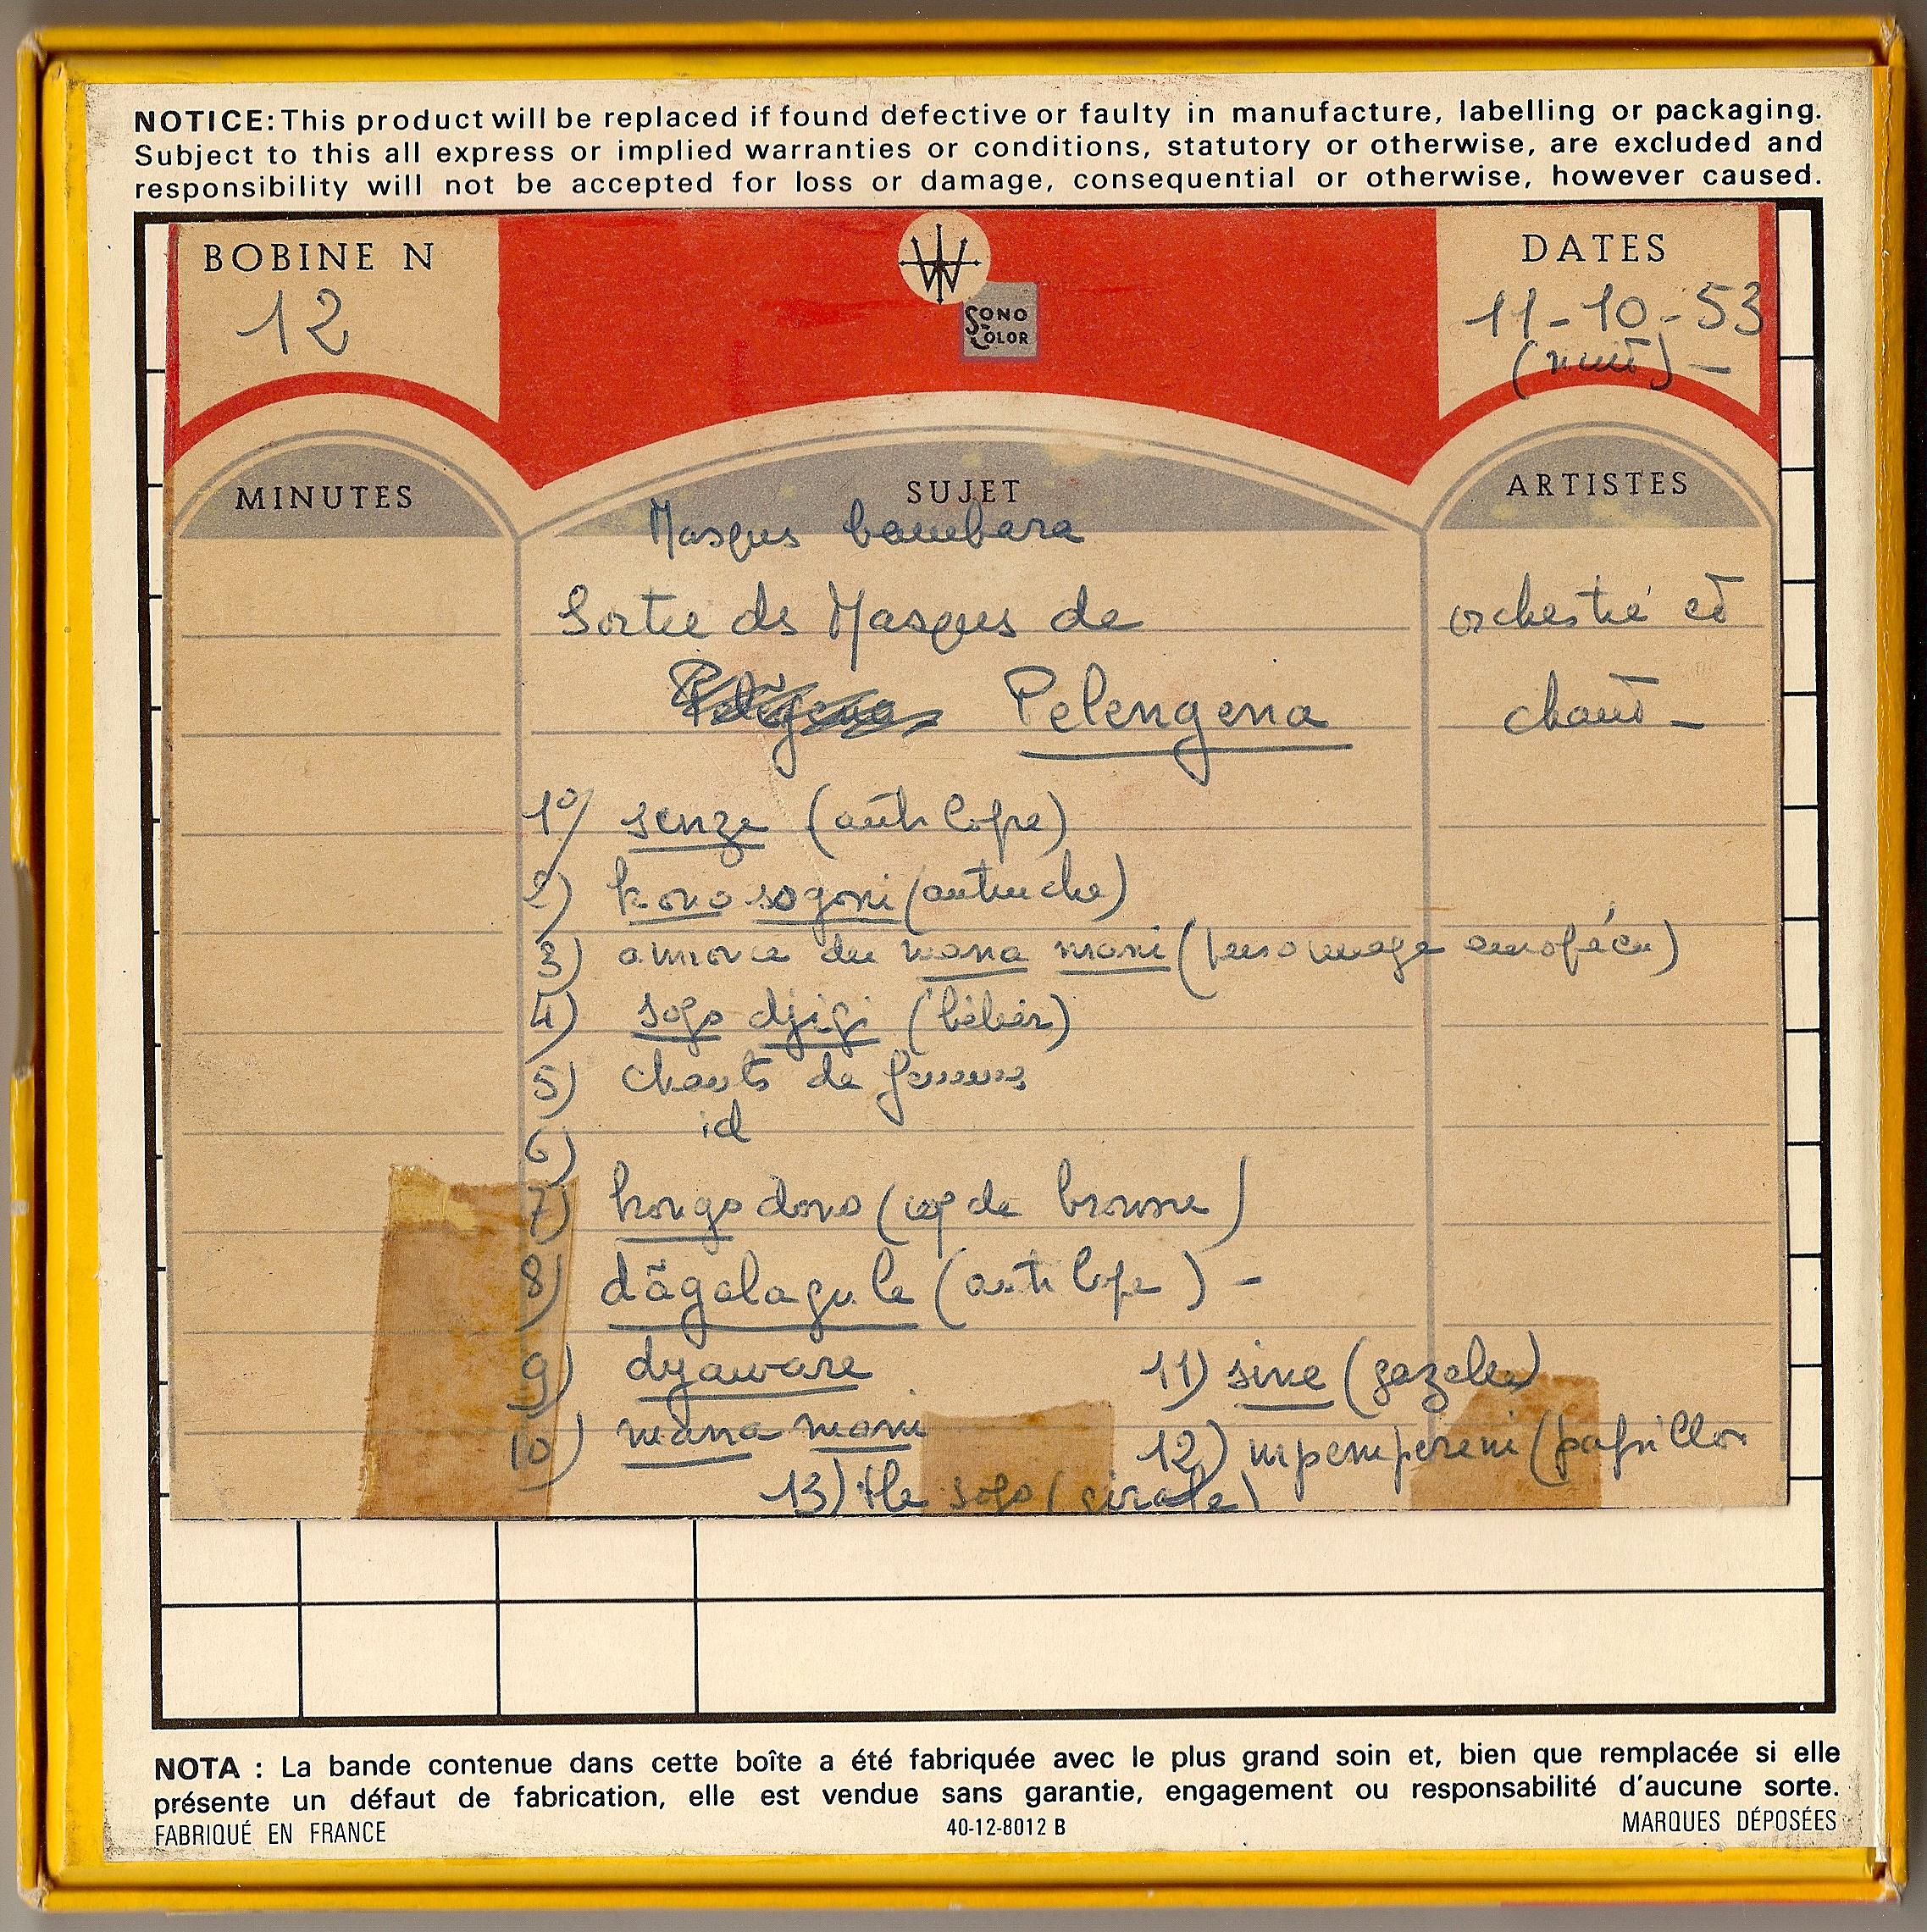 NOTICE: This product will be replaced if found defective or faulty in manufacture, labelling or packaging.
Subject to this all express or implied warranties or conditions, statutory or otherwise, are excluded and
responsibility will not be accepted for loss or damage, consequential or otherwise, however caused.
BOBINE N
12
SONO
COLOR
DATES
11-10-53
(nuit) -
MINUTES
SUJET
ARTISTES
Masques bambara
Sortie des Masques de
Pelengena
orchestre et
chant -
1°/ senze (antilope)
2) kono sogoni (autruche)
3) amorce du mana mani (personnage européen)
4) sogo djigi (bélier)
5) chants de femmes
6) id
7) kongo dono (coq de brousse)
8) dãgalagule (antilope) -
9) dyaware
10) mana mani
11) sine (gazelle)
12) mpempereni (papillon
13) the sogo (girafe)
NOTA : La bande contenue dans cette boîte a été fabriquée avec le plus grand soin et, bien que remplacée si elle
présente un défaut de fabrication, elle est vendue sans garantie, engagement ou responsabilité d'aucune sorte.
FABRIQUÉ EN FRANCE
40-12-8012 B
MARQUES DÉPOSÉES